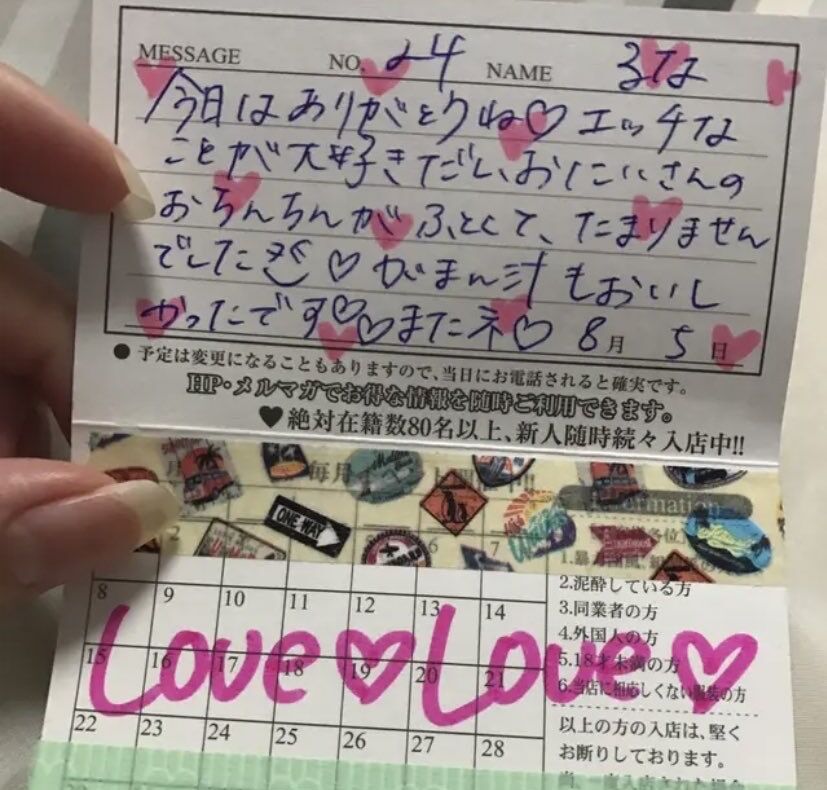 MESSAGE NO. 24 NAME るな
今日はありがとうね♡エッチな
ことが大好きだし、おにいさんの
おちんちんがふとくて、たまりません
でした♡がまん汁もおいし
かったです♡♡またネ♡ 8月 5日
●予定は変更になることもありますので、当日にお電話されると確実です。
HP・メルマガでお得な情報を随時ご利用できます。
♥絶対在籍数80名以上、新人随時続々入店中!!
月 毎月
ONE WAY
2 6 7
8 9 10 11 12 13 14
15 16 17 18 19 20 21
Love♡Love♡
22 23 24 25 26 27 28
Information
2.泥酔している方
3.同業者の方
4.外国人の方
5.18才未満の方
6.当店に相応しくない服装の方
以上の方の入店は、堅く
お断りしております。